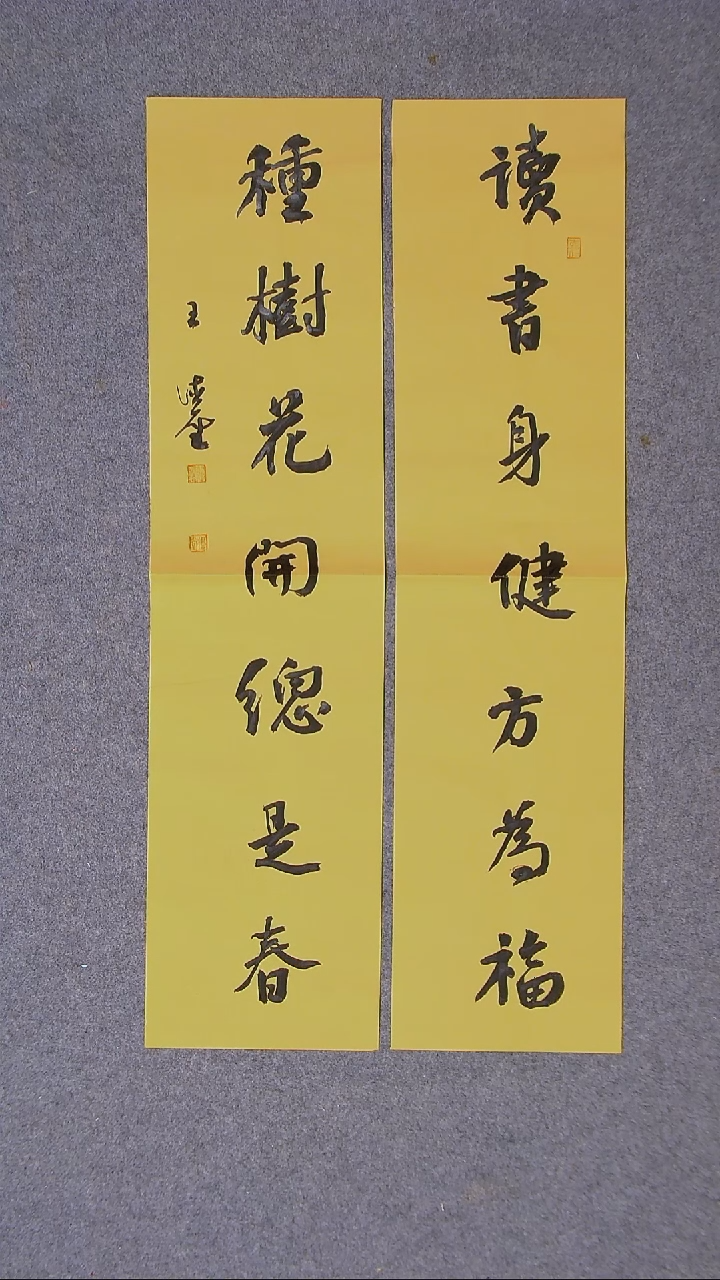 讀書身健方為福
種樹花開總是春
王